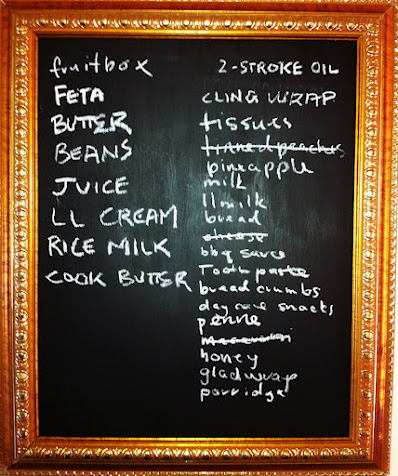 fruitbox
FETA
BUTTER
BEANS
JUICE
LL CREAM
RICE MILK
COOK BUTTER
2-STROKE OIL
CLING WRAP
tissues
tinned peaches
pineapple
milk
ll milk
bread
cheese
bbq sauce
Tooth paste
bread crumbs
day care snacks
penne
macaroni
honey
gladwrap
porridge